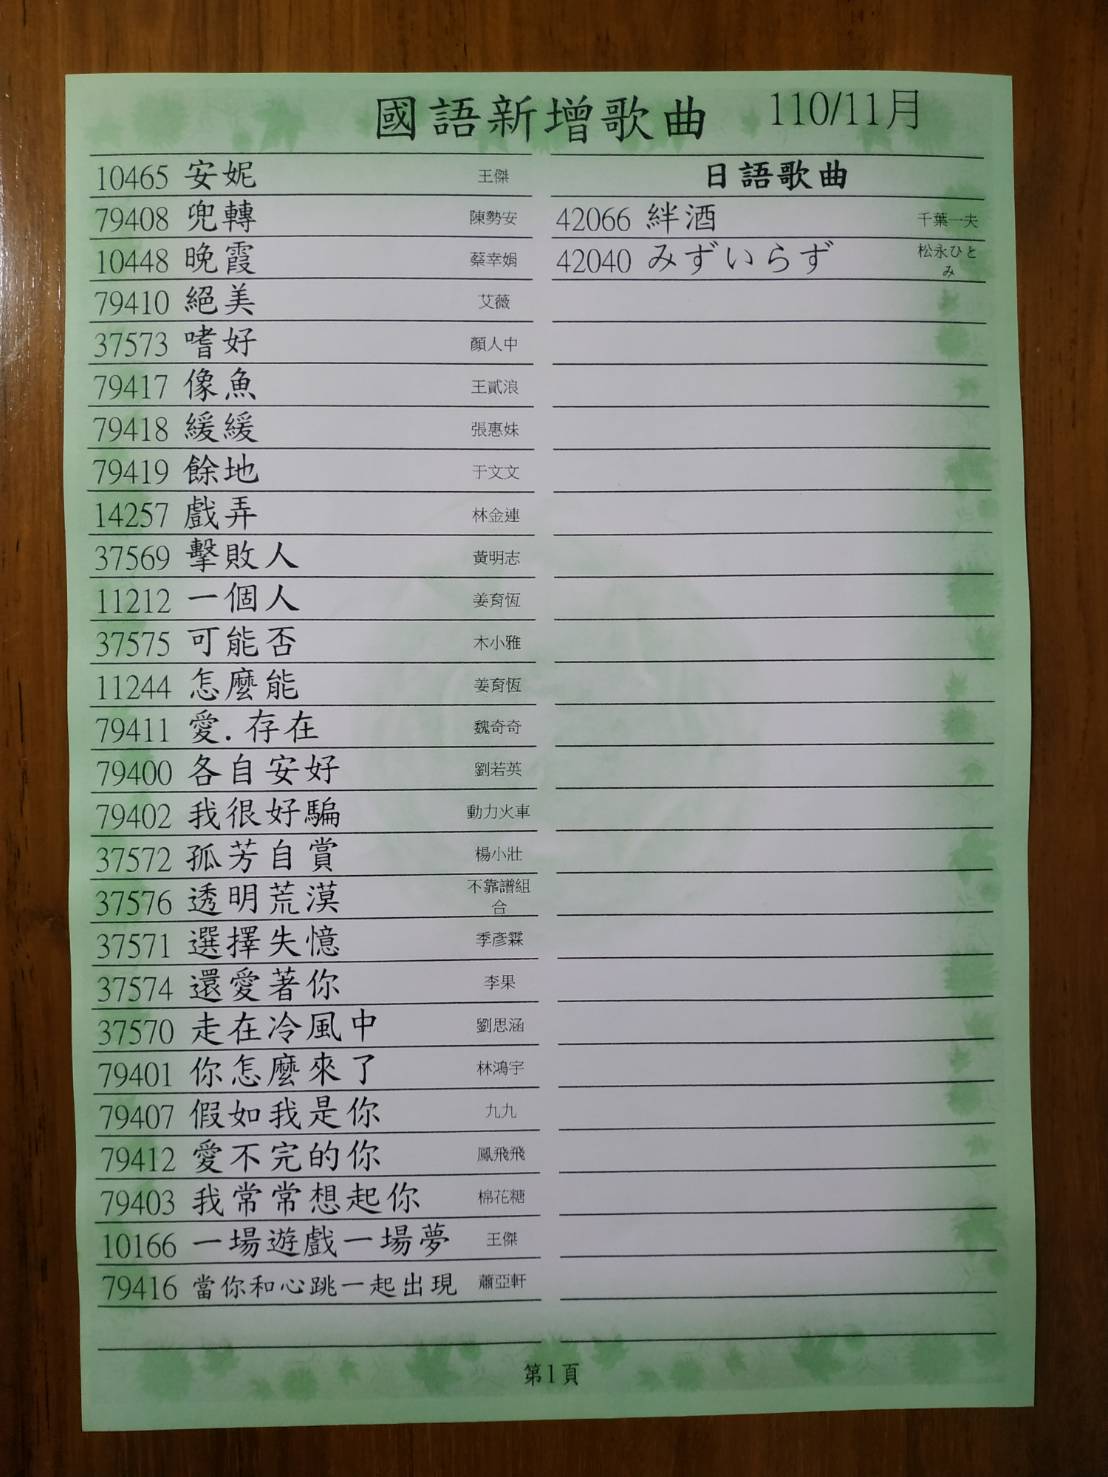 國語新增歌曲 110/11月
10465 安妮 王傑
79408 兜轉 陳勢安
10448 晚霞 蔡幸娟
79410 絕美 艾薇
37573 嗜好 顏人中
79417 像魚 王貳浪
79418 緩緩 張惠妹
79419 餘地 于文文
14257 戲弄 林金連
37569 擊敗人 黃明志
11212 一個人 姜育恆
37575 可能否 木小雅
11244 怎麼能 姜育恆
79411 愛.存在 魏奇奇
79400 各自安好 劉若英
79402 我很好騙 動力火車
37572 孤芳自賞 楊小壯
37576 透明荒漠 不靠譜組
合
37571 選擇失憶 季彥霖
37574 還愛著你 李果
37570 走在冷風中 劉思涵
79401 你怎麼來了 林鴻宇
79407 假如我是你 九九
79412 愛不完的你 鳳飛飛
79403 我常常想起你 棉花糖
10166 一場遊戲一場夢 王傑
79416 當你和心跳一起出現 蕭亞軒
日語歌曲
42066 絆酒 千葉一夫
42040 みずいらず 松永ひと
み
第1頁